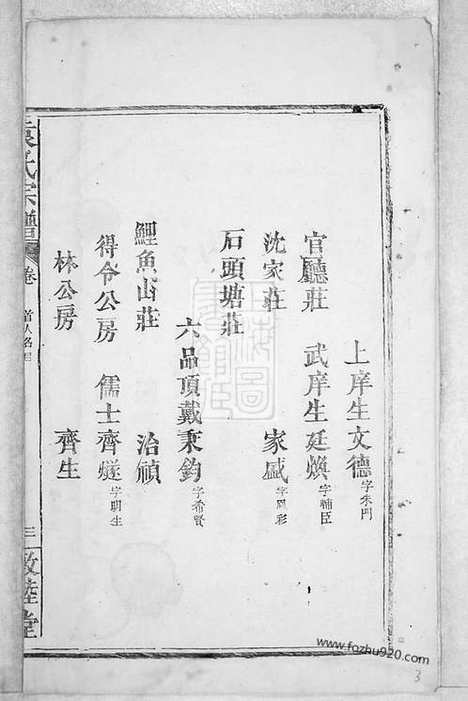 上庠生文德字朱門
官廳莊 武庠生廷煥字輔臣
沈家莊 家盛字鳳彩
石頭塘莊
六品頂戴秉鈞字希賢
鯉魚山莊 治禎
得令公房 儒士齊燧字明生
林公房 齊生
袁氏宗譜 卷首 人名 三 敦睦堂
www.fozhu920.com
3